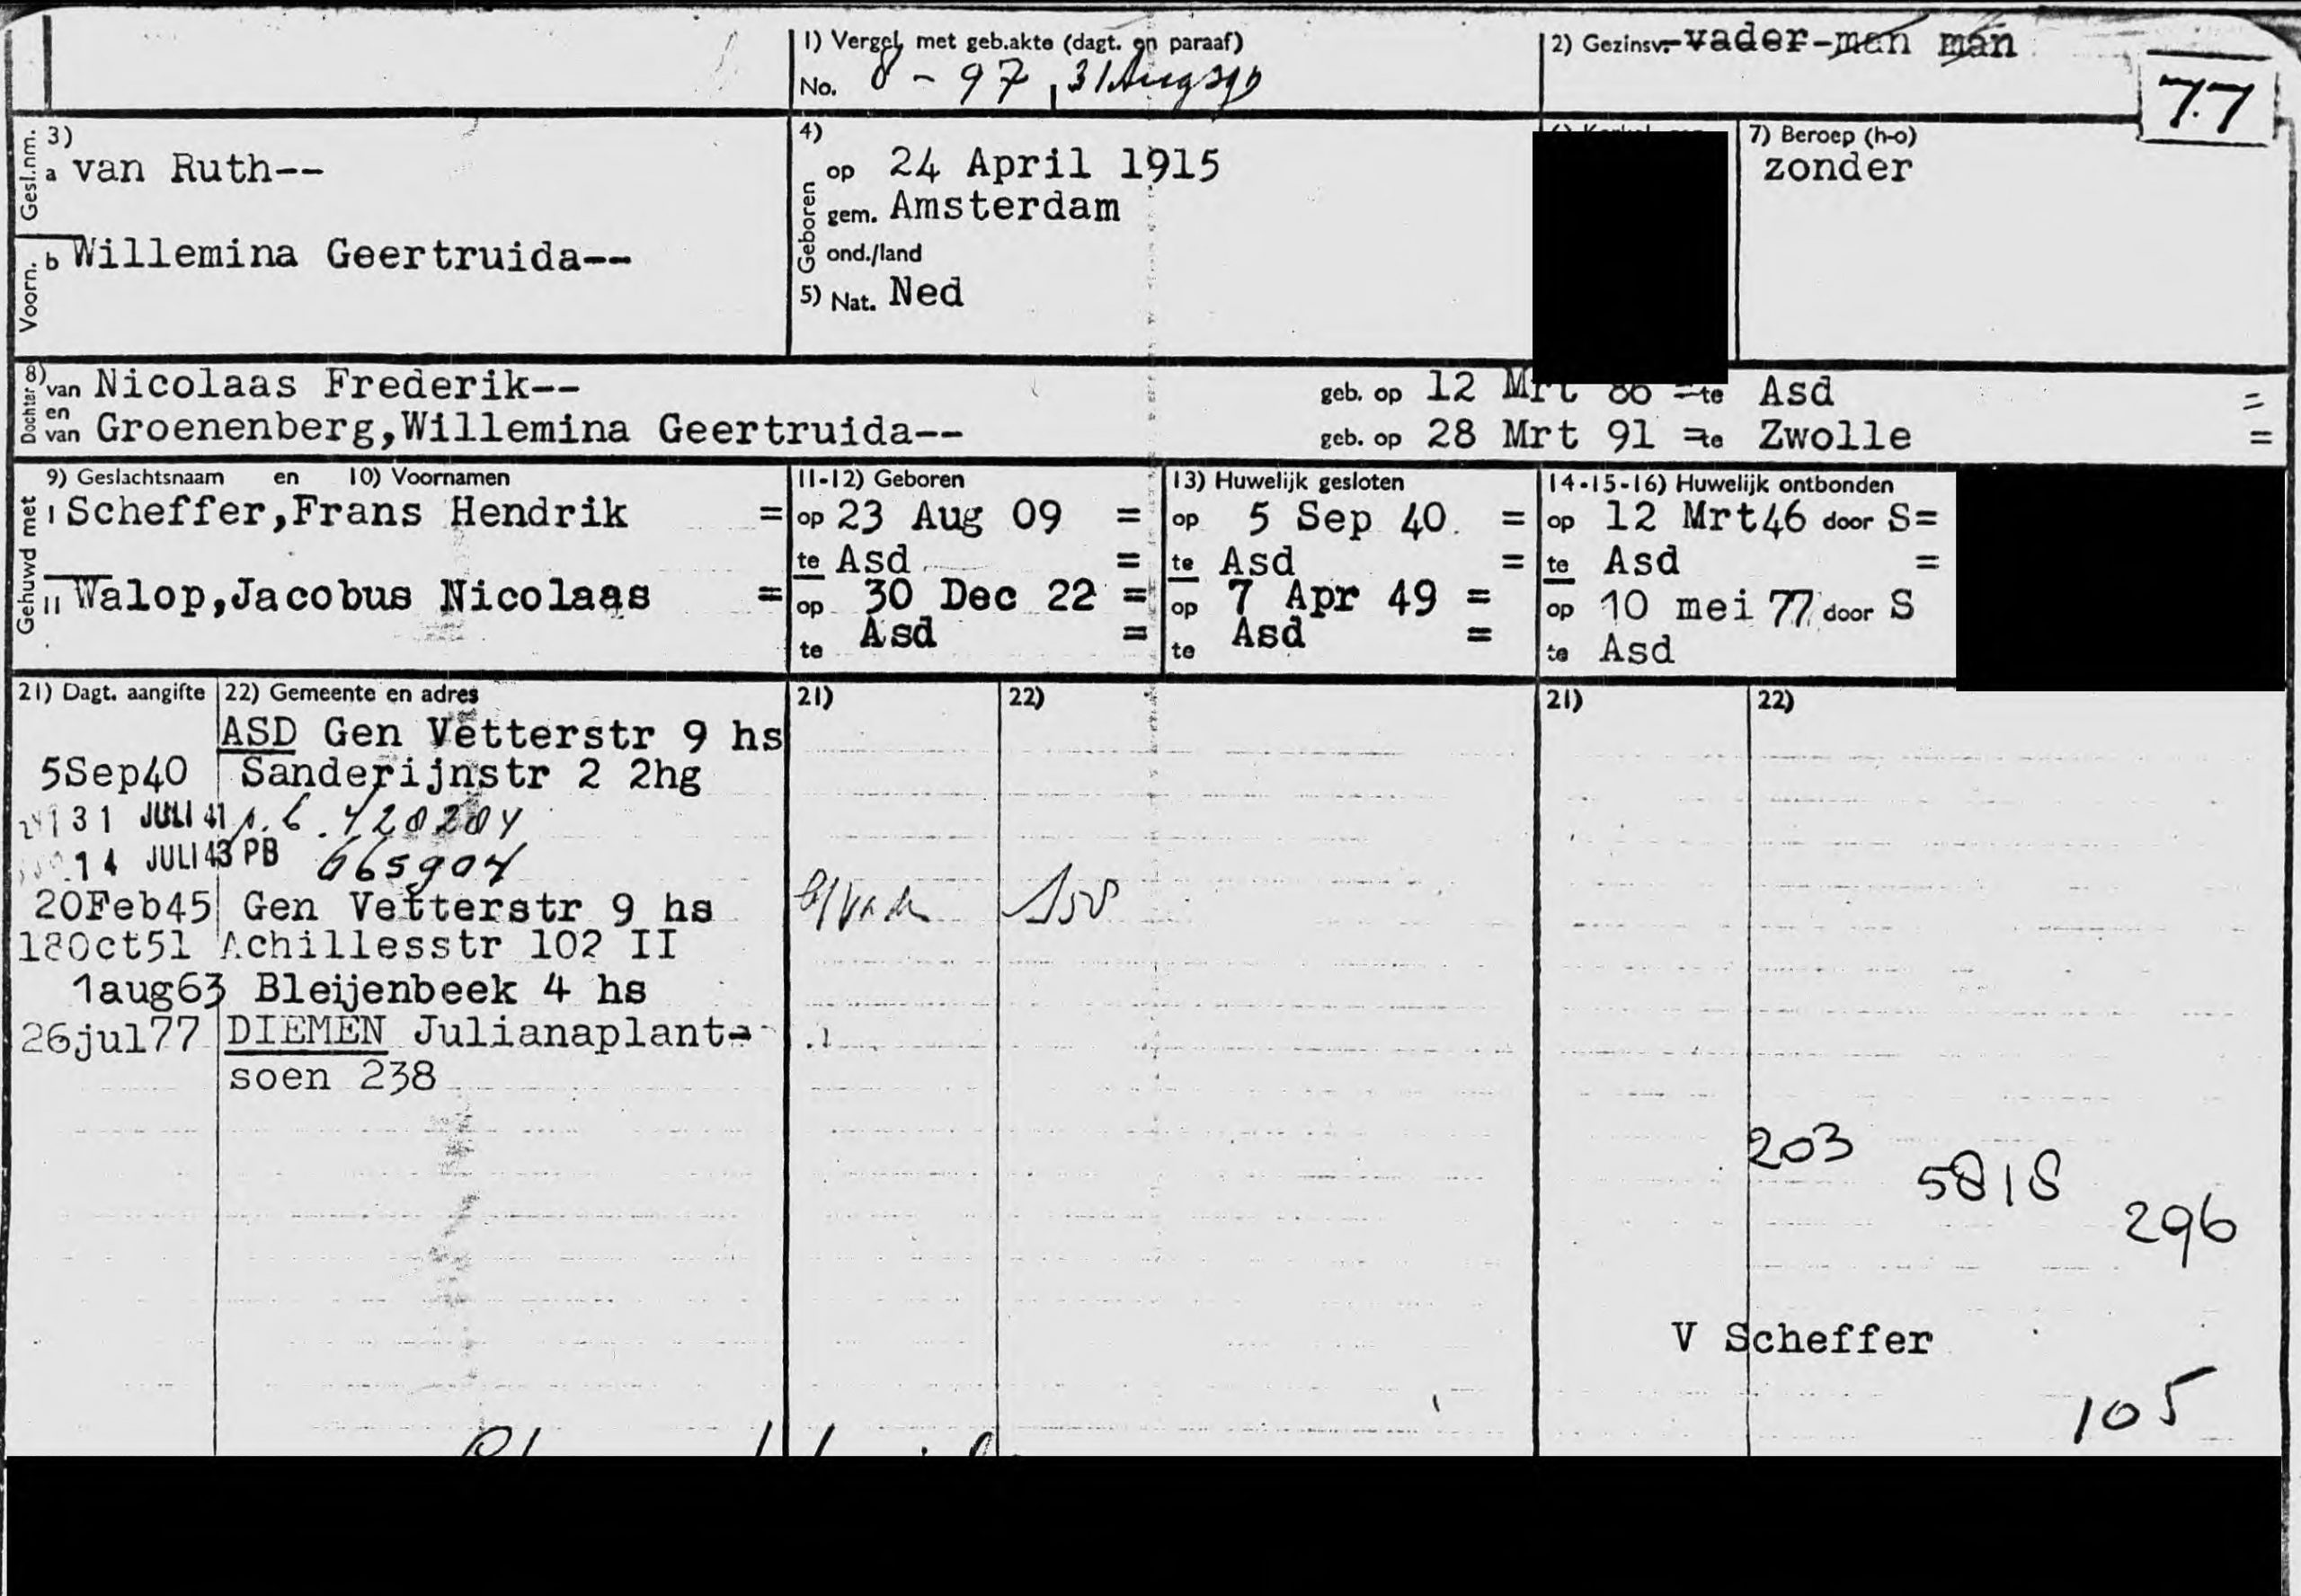 1) Vergel. met geb.akte (dagt. en paraaf)
No. 8 - 97, 31 Aug 39
2) Gezinsv. -vader-man man
77
3)
Gesl.nm. a van Ruth--
Voorn. b Willemina Geertruida--
4)
Geboren op 24 April 1915
gem. Amsterdam
ond./land
5) Nat. Ned
7) Beroep (h-o)
zonder
8) Dochter van Nicolaas Frederik-- geb. op 12 Mrt 86 = te Asd =
en van Groenenberg,Willemina Geertruida-- geb. op 28 Mrt 91 = te Zwolle =
Gehuwd met
9) Geslachtsnaam en 10) Voornamen
I Scheffer,Frans Hendrik =
II Walop,Jacobus Nicolaas =
11-12) Geboren
op 23 Aug 09 =
te Asd =
op 30 Dec 22 =
te Asd =
13) Huwelijk gesloten
op 5 Sep 40. =
te Asd =
op 7 Apr 49 =
te Asd =
14-15-16) Huwelijk ontbonden
op 12 Mrt46 door S=
te Asd =
op 10 mei 77 door S
te Asd
21) Dagt. aangifte 22) Gemeente en adres 21) 22) 21) 22)
ASD Gen Vetterstr 9 hs
5Sep40 Sanderijnstr 2 2hg
31 JULI 41
14 JULI 43 PB 665904
20Feb45 Gen Vetterstr 9 hs
18Oct51 Achillesstr 102 II
1aug63 Bleijenbeek 4 hs
26jul77 DIEMEN Julianaplant-
soen 238
203
5818
296
V Scheffer
105